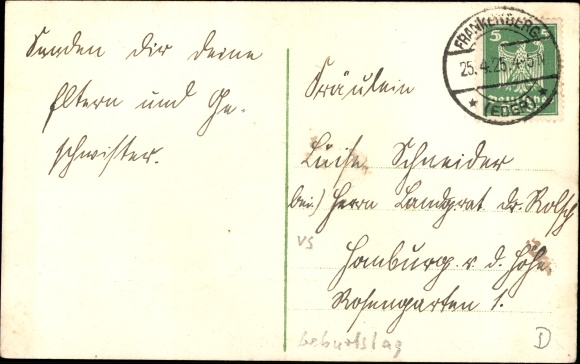 Senden dir deine
Eltern und Ge-
schwister.
FRANKENBERG
25.4.25.4-5N
★ (EDER) ★
5 5
Fräulein
Luise Schneider
bei) Herrn Landgrat dr. Rolsch
VS
Homburg v. d. Höhe
Rosengarten 1.
Geburtstag
D